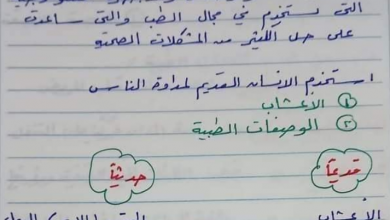 التى تستخدم في مجال الطب والتى ساعدة
على حل الكثير من المشكلات الصحية
استخدم الانسان القديم لمداوة الناس
① الأعشاب
② الوصفات الطبية
قديماً حديثاً
الأعشاب